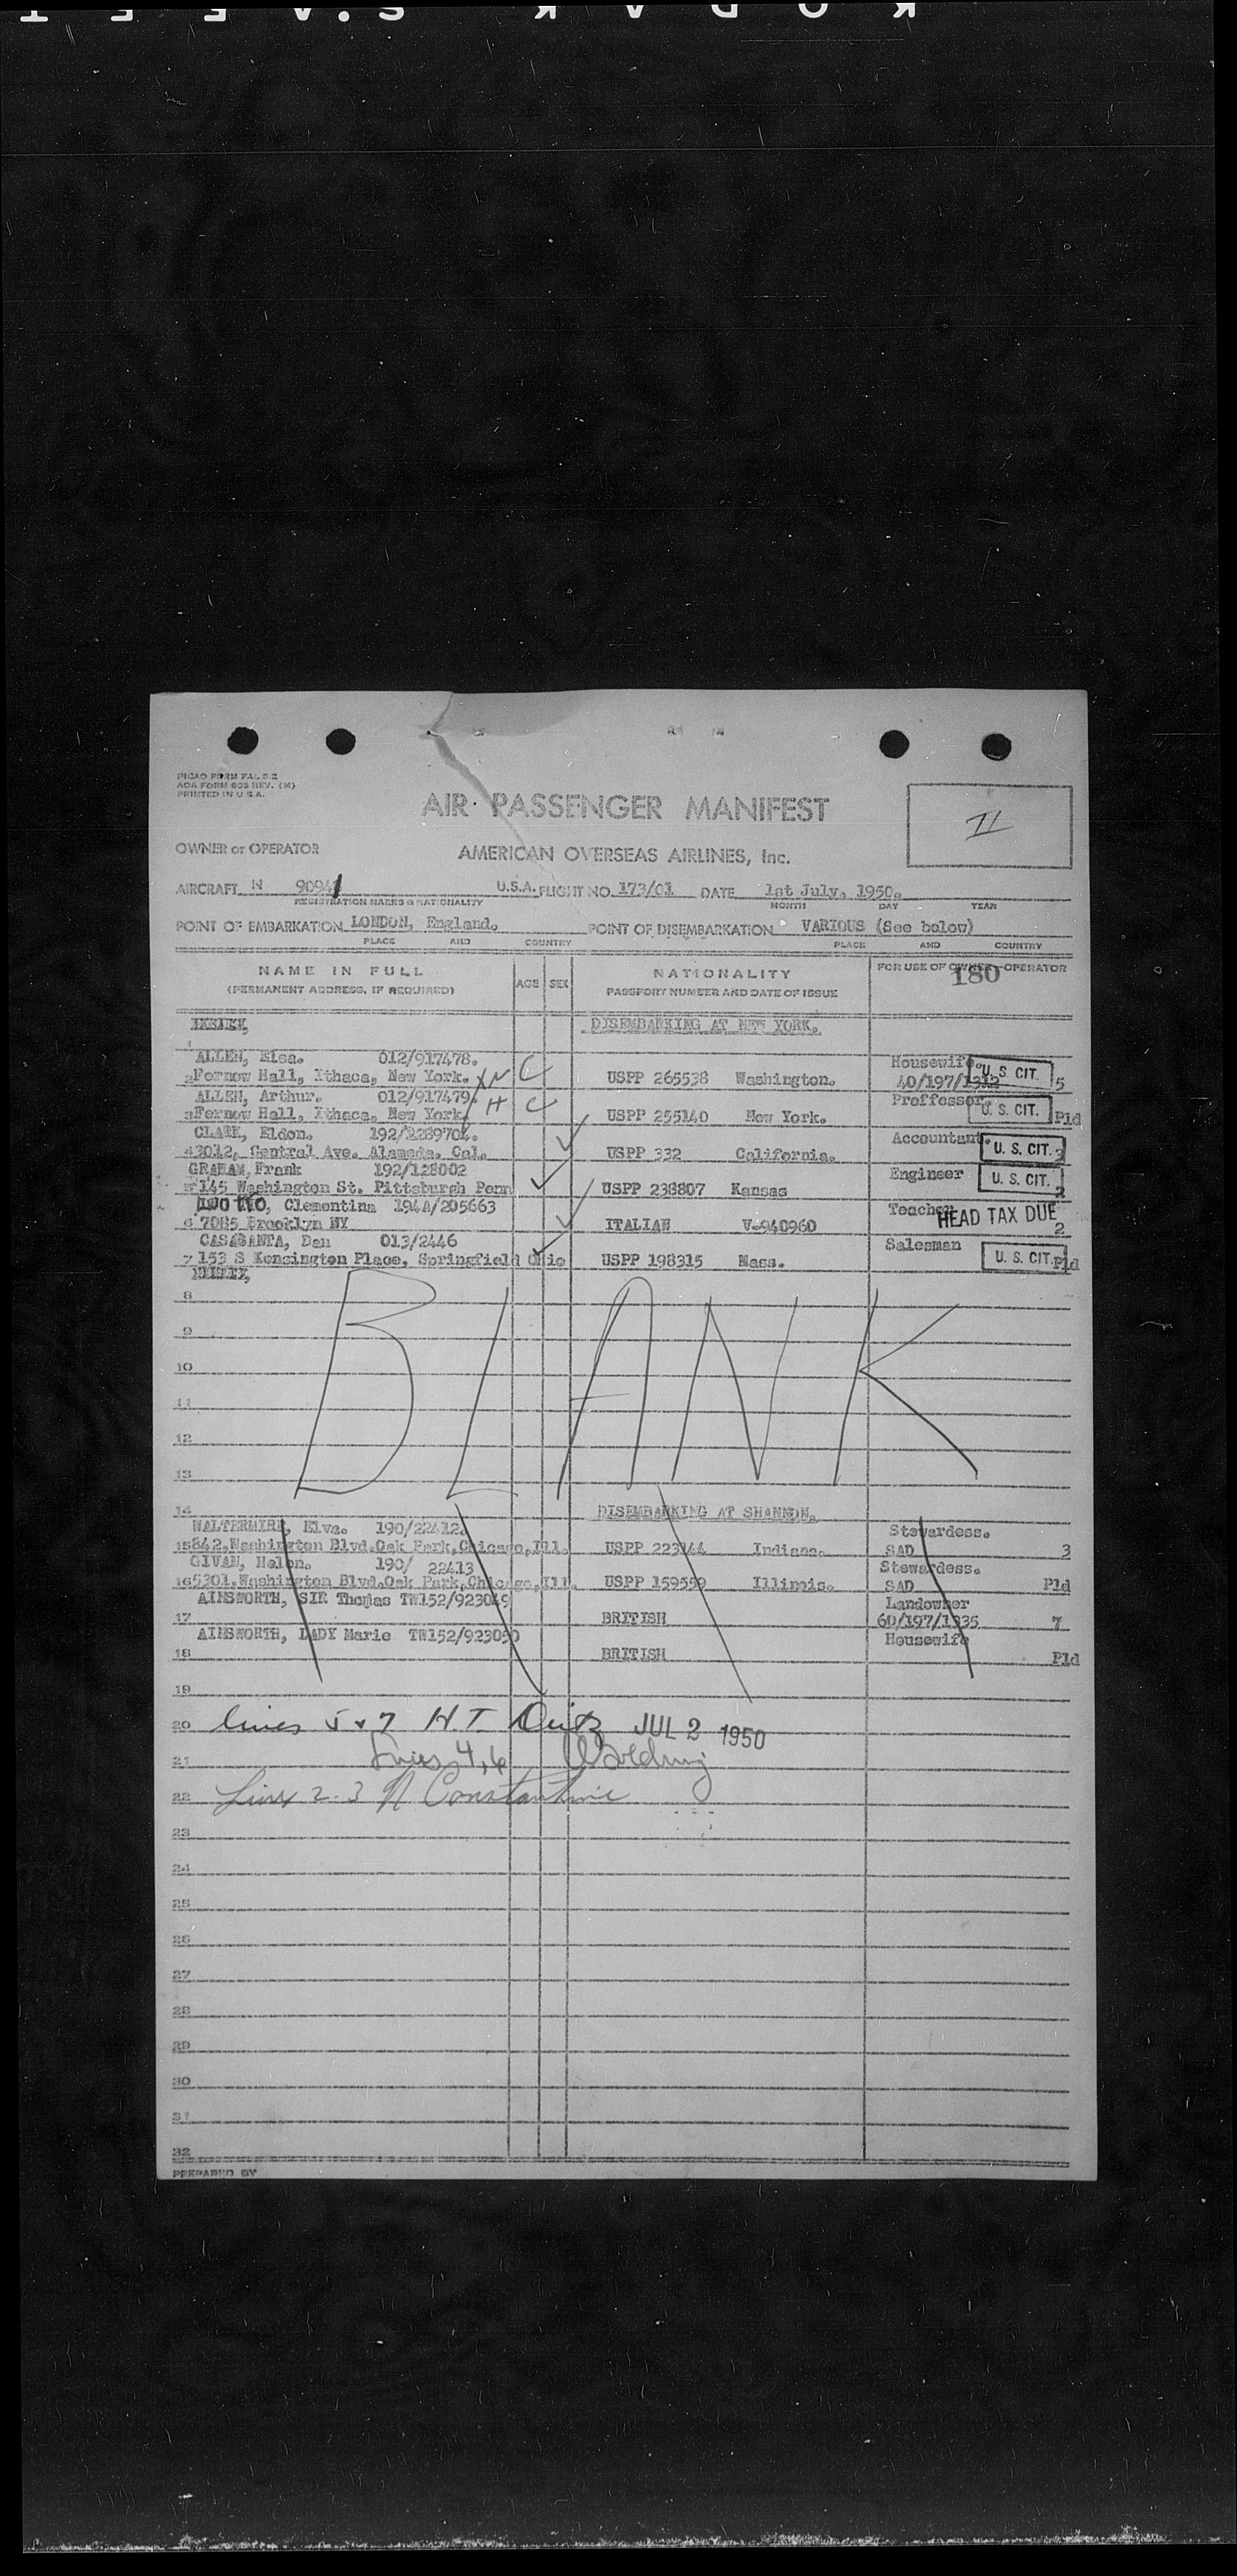 KODAK S.A.F.E.T
PICAO FORM FAL S-2
AOA FORM 603 REV. (M)
PRINTED IN U.S.A.
AIR PASSENGER MANIFEST
II
OWNER or OPERATOR AMERICAN OVERSEAS AIRLINES, Inc.
AIRCRAFT N 90941 U.S.A. FLIGHT NO. 173/01 DATE 1st July, 1950.
REGISTRATION MARKS & NATIONALITY MONTH DAY YEAR
POINT OF EMBARKATION LONDON, England. POINT OF DISEMBARKATION VARIOUS (See below)
PLACE AND COUNTRY PLACE AND COUNTRY
NAME IN FULL AGE SEX NATIONALITY FOR USE OF OWNER OPERATOR
(PERMANENT ADDRESS, IF REQUIRED) PASSPORT NUMBER AND DATE OF ISSUE 180
DISEMBARKING AT NEW YORK.
1
ALLEN, Elsa. 012/917478. Housewife.
2 Fernow Hall, Ithaca, New York. XN C USPP 265538 Washington. 40/197/1312 U.S. CIT. 5
ALLEN, Arthur. 012/917479. Proffessor.
3 Fernow Hall, Ithaca, New York. H C USPP 255140 New York. U.S. CIT. Pld
CLARK, Eldon. 192/1289704. Accountant.
4 3012, Central Ave. Alameda. Cal. USPP 332 California. U.S. CIT. 3
GRAHAM, Frank 192/128002 Engineer
5 145 Washington St. Pittsburgh Penn USPP 238807 Kansas U.S. CIT. 2
Clementina 194A/205663 Teacher
6 7085 Brooklyn NY ITALIAN V-940960 HEAD TAX DUE 2
CASABANTA, Dan 013/2446 Salesman
7 153 S Kensington Place, Springfield Ohio USPP 198315 Mass. U.S. CIT. Pld
8
BLANK
9
10
11
12
13
14 DISEMBARKING AT SHANNON.
WALTERMIRE, Elva. 190/22412. Stewardess.
15 842, Washington Blvd. Oak Park, Chicago, Ill. USPP 223144 Indiana. SAD 3
GIVAN, Helen. 190/ 22413 Stewardess.
16 5201, Washington Blvd. Oak Park, Chicago, Ill. USPP 159559 Illinois. SAD Pld
AINSWORTH, SIR Thomas TW152/923049 Landowner
17 BRITISH 60/197/1335 7
AINSWORTH, LADY Marie TW152/923050 Housewife
18 BRITISH Pld
19
20 lines 5 + 7 H.T. JUL 2 1950
21 Lines 4, 6
22 Lines 2-3 N Constantine
23
24
25
26
27
28
29
30
31
32
PREPARED BY